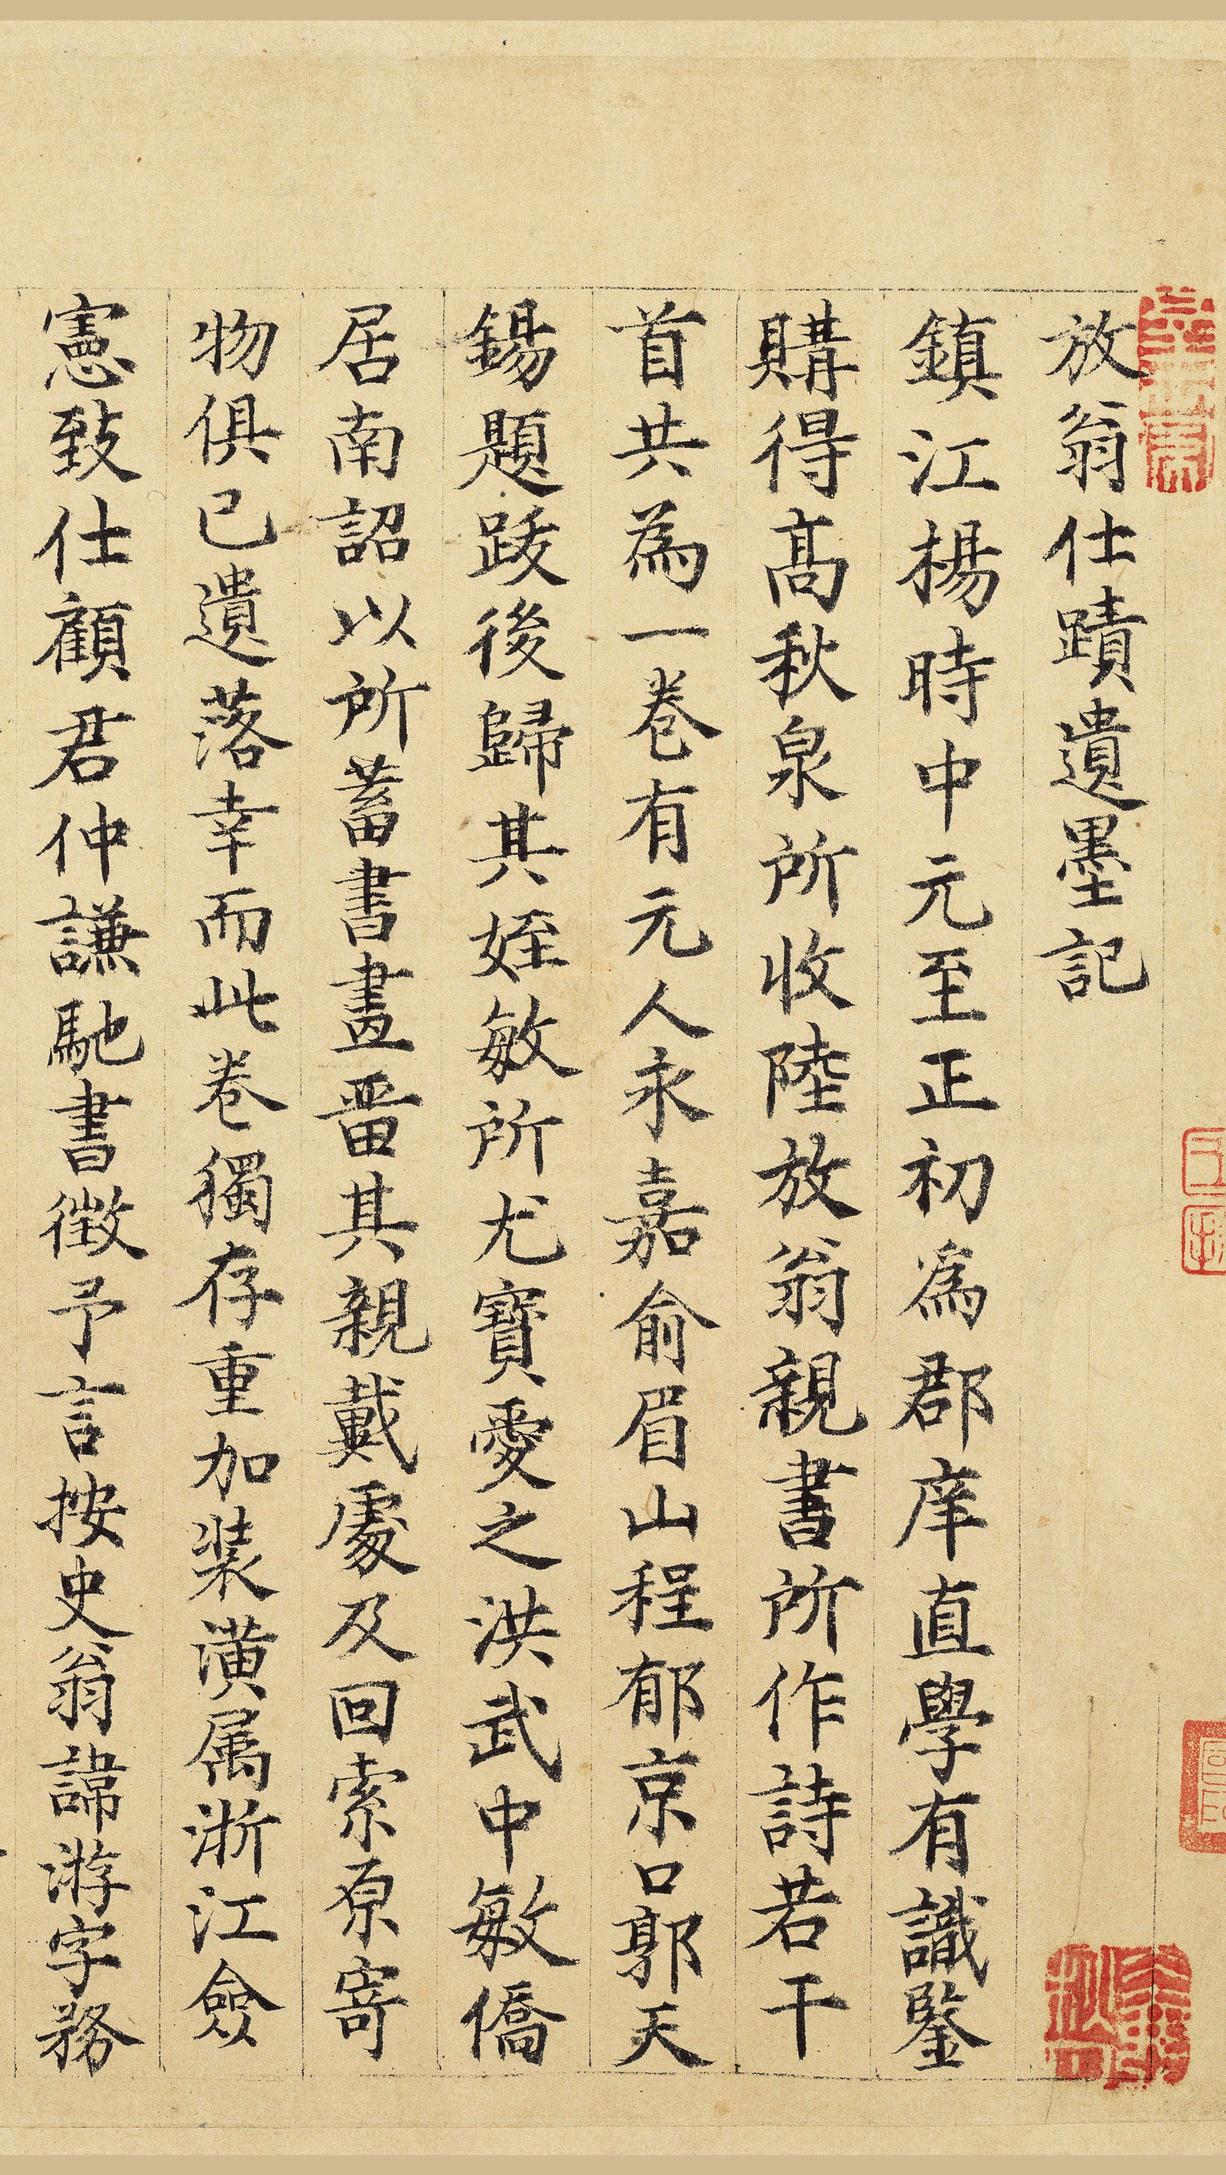 放翁仕蹟遺墨記
鎮江楊時中元至正初爲郡庠直學有識鑒
購得髙秋泉所收陸放翁親書所作詩若干
首共為一卷有元人永嘉俞眉山程郁京口郭天
錫題跋後歸其姪敏所尤寶愛之洪武中敏僑
居南詔以所蓄書畫畱其親戴處及回索原寄
物俱已遺落幸而此卷獨存重加装潢属浙江僉
憲致仕顧君仲謙馳書徴予言按史翁諱游字務